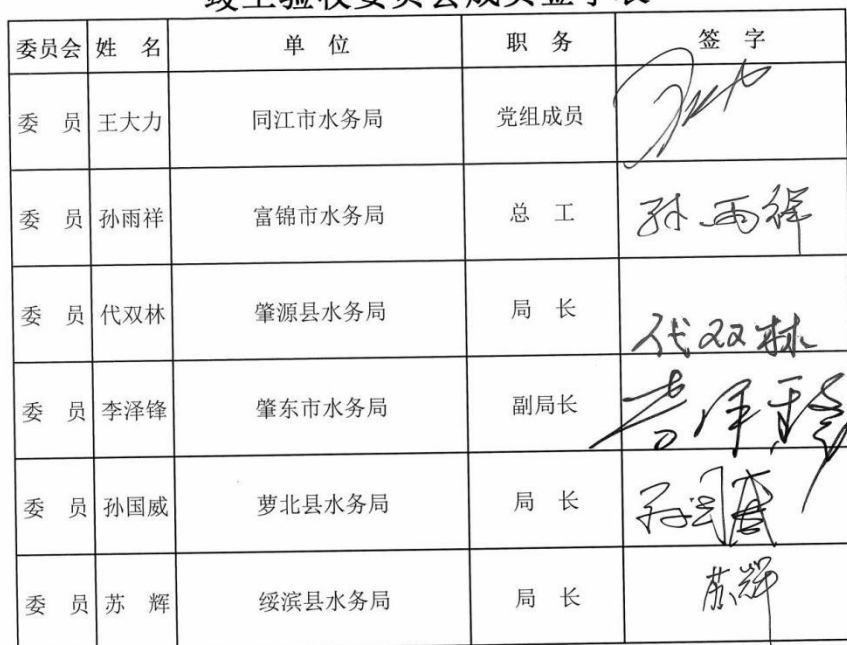 竣工验收委员会成员签字表
委员会 姓 名 单 位 职 务 签 字
委 员 王大力 同江市水务局 党组成员
委 员 孙雨祥 富锦市水务局 总 工 孙雨祥
委 员 代双林 肇源县水务局 局 长 代双林
委 员 李泽锋 肇东市水务局 副局长
委 员 孙国威 萝北县水务局 局 长
委 员 苏 辉 绥滨县水务局 局 长 苏辉